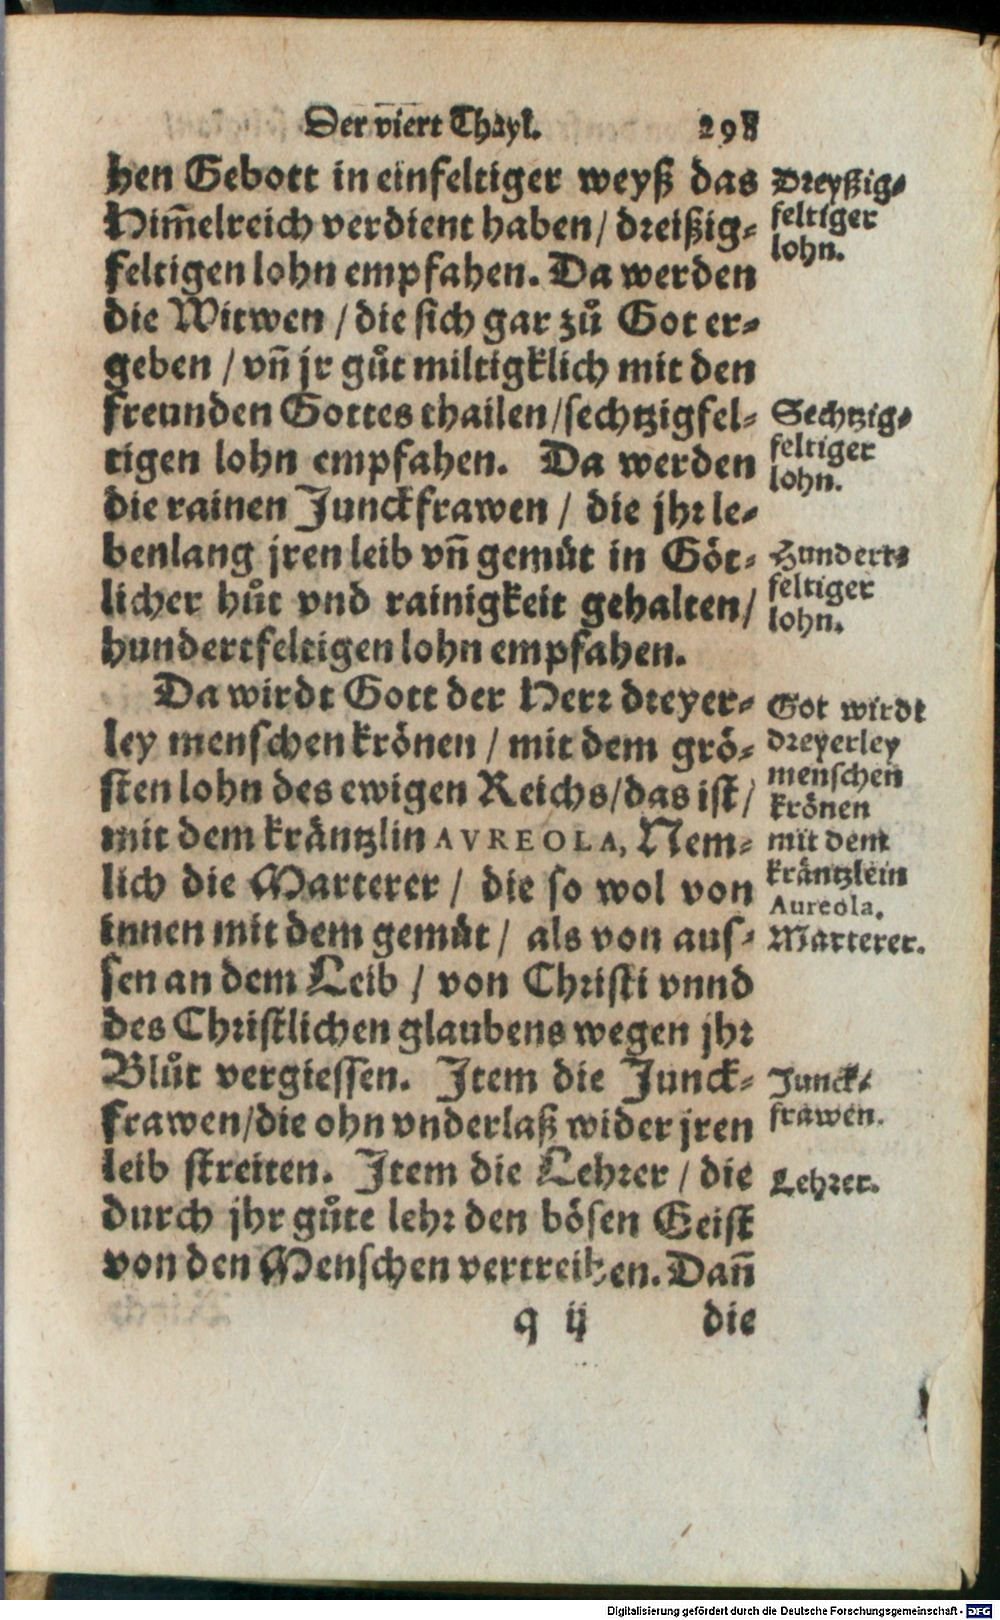 Der viert Thayl. 298
hen Gebott in einfeltiger weyß das
Him̃elreich verdient haben / dreißig-
feltigen lohn empfahen. Da werden
die Witwen / die sich gar zů Got er-
geben / vñ jr gůt miltigklich mit den
freunden Gottes thailen / sechtzigfel-
tigen lohn empfahen. Da werden
die rainen Junckfrawen / die jhr le-
benlang jren leib vñ gemüt in Göt-
licher hůt vnd rainigkeit gehalten /
hundertfeltigen lohn empfahen.
Da wirdt Gott der Herr dreyer-
ley menschen krönen / mit dem grö-
sten lohn des ewigen Reichs / das ist /
mit dem kräntzlin AVREOLA, Nem-
lich die Marterer / die so wol von
innen mit dem gemüt / als von aus-
sen an dem Leib / von Christi vnnd
des Christlichen glaubens wegen jhr
Blůt vergiessen. Item die Junck-
frawen / die ohn vnderlaß wider jren
leib streiten. Item die Lehrer / die
durch jhr gůte lehr den bösen Geist
von den Menschen vertreiben. Dañ
q ij die
Dreyßig-
feltiger
lohn.
Sechtzig-
feltiger
lohn.
Hundert-
feltiger
lohn.
Got wirdt
dreyerley
menschen
krönen
mit dem
kräntzlein
Aureola.
Marterer.
Junck-
frawen.
Lehrer.
Digitalisierung gefördert durch die Deutsche Forschungsgemeinschaft - DFG